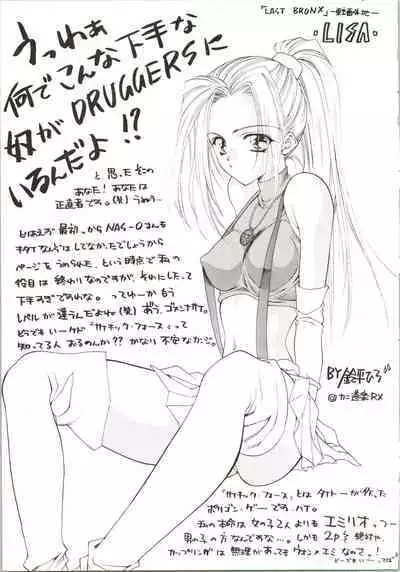 「LAST BRONX」
・LISA・
うっわぁ
何でこんな下手な
奴がDRUGGERSに
いるんだよ!?
と思ったそこの
あなた!あなたは
正直者です。(笑)
とはいえず最初からNAS-Oさんも
キタイなんぞはしてなかったでしょうから
ページをうめられた、という時点で私の
役目は終わりなのですが、それにしたって
下手すぎですわな。ってゆーかもう
レベルが違うんだよね(笑)
どうでもいーケド「サイキック・フォース」って
知ってる人おるのんか??かなり不安なカンジ。
BY鈴平ひろ
RX
「サイキック・フォース」とはタイトーが作った
ポリゴン・ゲーです。ハイ。
私の本命は女の子2人よりもエミリオっつー
男の子の方なんですが…。しかも2P
カップリングは無理があってもウォン×エミなので。!